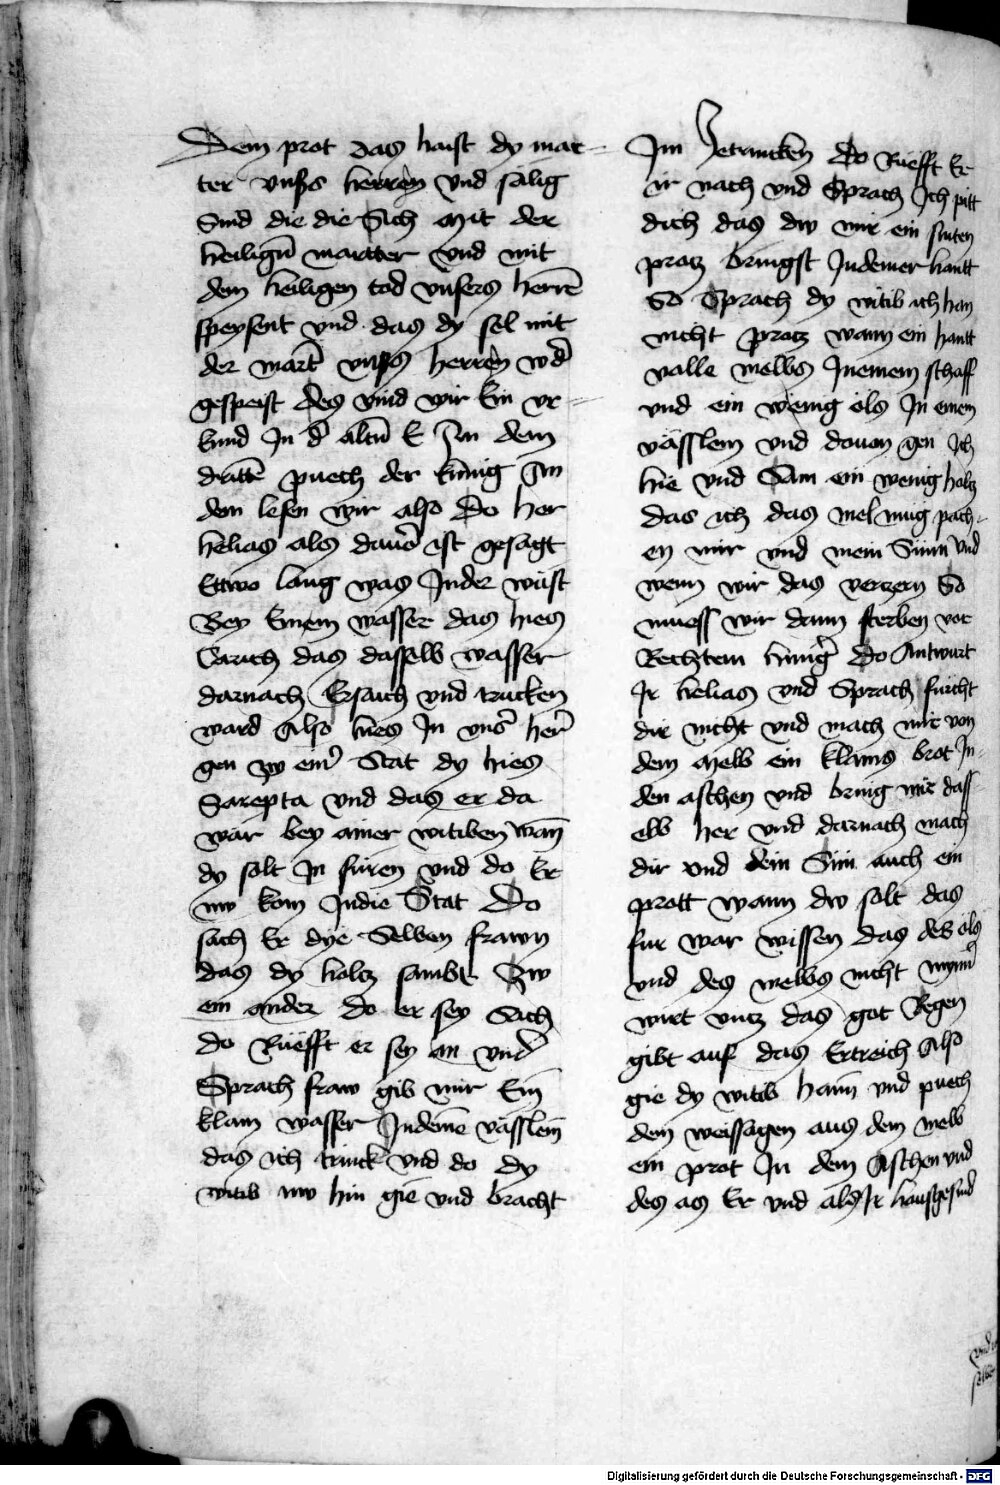 Dem prot das haist dy mar-
ter vnsers herren vnd sälig
Sind die die Sich Mit der
heiligen martter vnd mit
dem heiligen tod vnsers herrē
speysent vnd das dy sel mit
der mart̄ vnsers herren wd̄
gespeist des vind wir ein vr-
kund In d̄ altū E Im dem
drittē puech der künig Im
dem lesen wir also Do her
helias als dauor ist gesagt
Ettwo lang was Inder wüst
Bey Einem wasser das hies
Carith das dasselb wasser
darnach Ersaich vnd trucken
ward Also hies In vns̄ her̄
gen zw ein̄ Stat dy hies
Sarepta vnd das er da
wär bey ainer witiben wan̄
dy solt In füren vnd do Er
nw kom Indie Stat Do
sach Er dye Selben frawn
das dy holtz sambt Zw
ein ander do er sey Sach
do Rüefft er sey an vnd
Sprach fraw gib mir Ein
klain wasser Indemē vässlein
das ich trinck vnd do dy
witib nw hin gie vnd bracht
Im Zetrincken do Rüefft Er
ir nach vnd Sprach Ich pitt
dich das dw mir ein snitten
protz bringst Indeiner hantt
So Sprach dy witib ich han
nicht protz wann ein hantt
valle melbs Ineinem schaff
vnd ein wenig öls In einem
vässlein vnd dauon gen Ich
hie vnd Sam ein wenig holtz
das ich das mel mug pach-
en mir vnd mein Sünn vnd
wenn wir das verzern So
muess wir dann sterben vor
Rechtem hunḡ Do Antwurt
Ir helias vnd Sprach fürcht
dir nicht vnd mach mir von
dem Melb ein klains brot In
den aschen vnd bring mir das-
elb her vnd darnach mach
dir vnd dein Sün auch ein
prott wann dw solt das
für war wissen das des öls
vnd des melbs nicht mynn̄
wirt vntz das got Regen
gibt auf das Ertreich Also
gie dy witib haim vnd puech
dem weissagen aus dem melb
ein prot In dem Aschen vnd
des as Er vnd als Ir hausgesind
Digitalisierung gefördert durch die Deutsche Forschungsgemeinschaft - DFG